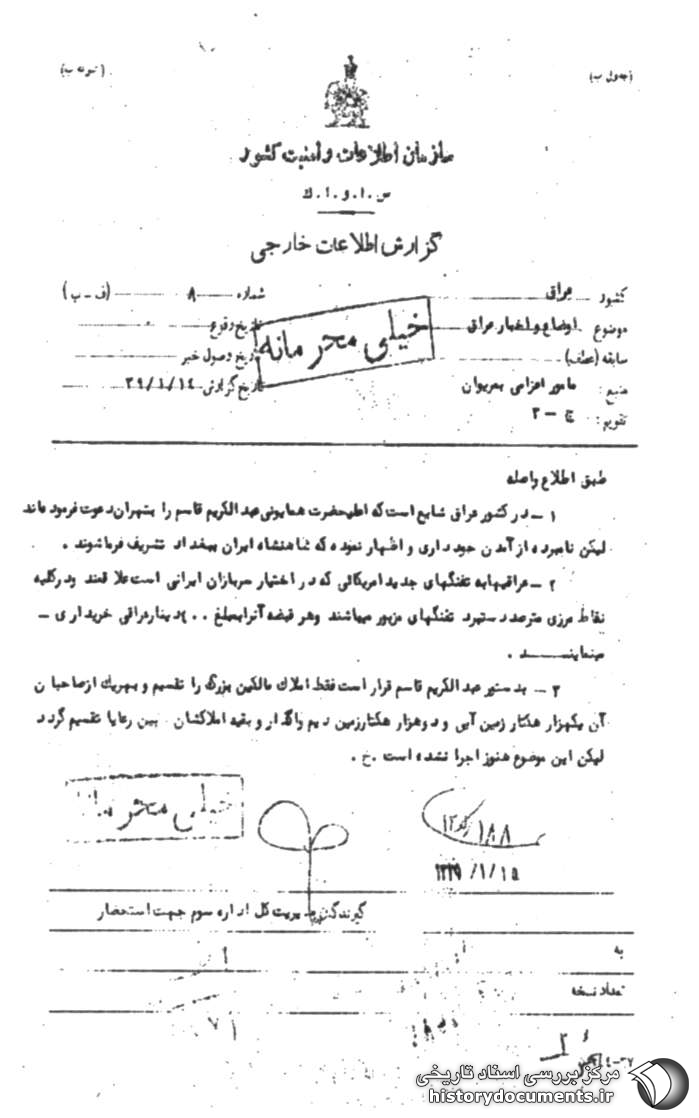 (جدول ب)
(نمونه ب)
سازمان اطلاعات و امنیت کشور
س.ا.و.ا.ك
گزارش اطلاعات خارجی
کشور عراق
شماره ۸ (ف-ب)
موضوع اوضاع و اخبار عراق
تاریخ وقوع
سابقه (عطف)
تاریخ وصول خبر
منبع: مامور اعزامی بمریوان
تاریخ گزارش ۳۹/۱/۱۴
تقویم: ج-۲
خیلی محرمانه
طبق اطلاع واصله
۱ - در کشور عراق شایع است که اعلیحضرت همایونی عبدالکریم قاسم را بتهران دعوت فرموده اند
لیکن نامبرده از آمدن خودداری و اظهار نموده که شاهنشاه ایران ببغداد تشریف فرما شوند .
۲ - عراقیها به تفنگهای جدید امریکائی که در اختیار سربازان ایرانی است علاقمند و در کلیه
نقاط مرزی مترصد دستبرد تفنگهای مزبور میباشند و هر قبضه آنرا بمبلغ دینار عراقی خریداری -
مینمایند .
۳ - بدستور عبدالکریم قاسم قرار است فقط املاك مالکین بزرگ را تقسیم و بهریك از صاحبان
آن یکهزار هکتار زمین آبی و دوهزار هکتار زمین دیم واگذار و بقیه املاکشان بین رعایا تقسیم گردد
لیکن این موضوع هنوز اجرا نشده است . خ .
خیلی محرمانه
۱۸۸
۱۳۳۹/۱/۱۵
گیرندگان مدیریت کل اداره سوم جهت استحضار
به
تعداد نسخه
مرکز بررسی اسناد تاریخی
historydocuments.ir